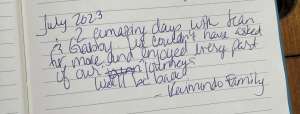 July 2023
2 amazing days with Fran
& Gabby. We couldn't have asked
for more and enjoyed every part
of our journeys
We'll be back
- Raimondo Family